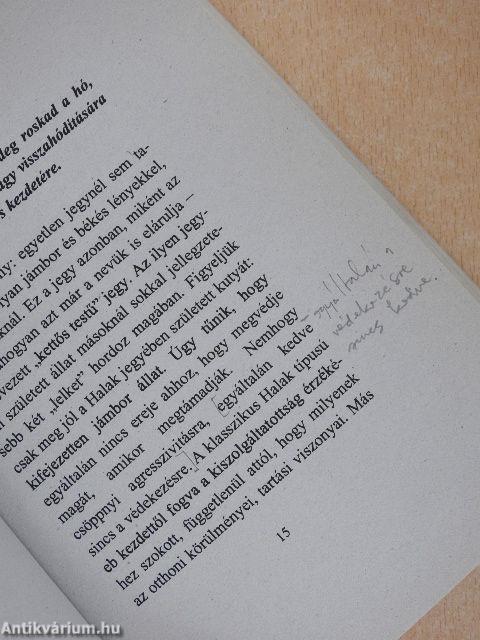 deg roskad a hó,
agy visszahódítására
s kezdetére.
ly: egyetlen jegynél sem ta-
lyan jámbor és békés lényekkel,
knál. Ez a jegy azonban, miként az
hogyan azt már a nevük is elárulja —
vezett „kettős testű” jegy. Az ilyen jegy-
n született állat másoknál sokkal jellegzete-
sebb két „lelket” hordoz magában. Figyeljük
csak meg jól a Halak jegyében született kutyát:
kifejezetten jámbor állat. Úgy tűnik, hogy
egyáltalán nincs ereje ahhoz, hogy megvédje
magát, amikor megtámadják. Nemhogy
csöppnyi agresszivitásra, egyáltalán kedve
sincs a védekezésre. A klasszikus Halak típusú
eb kezdettől fogva a kiszolgáltatottság érzéké-
hez szokott, függetlenül attól, hogy milyenek
az otthoni körülményei, tartási viszonyai. Más
védekezésre
nincs kedve.
15
Antikvárium.hu